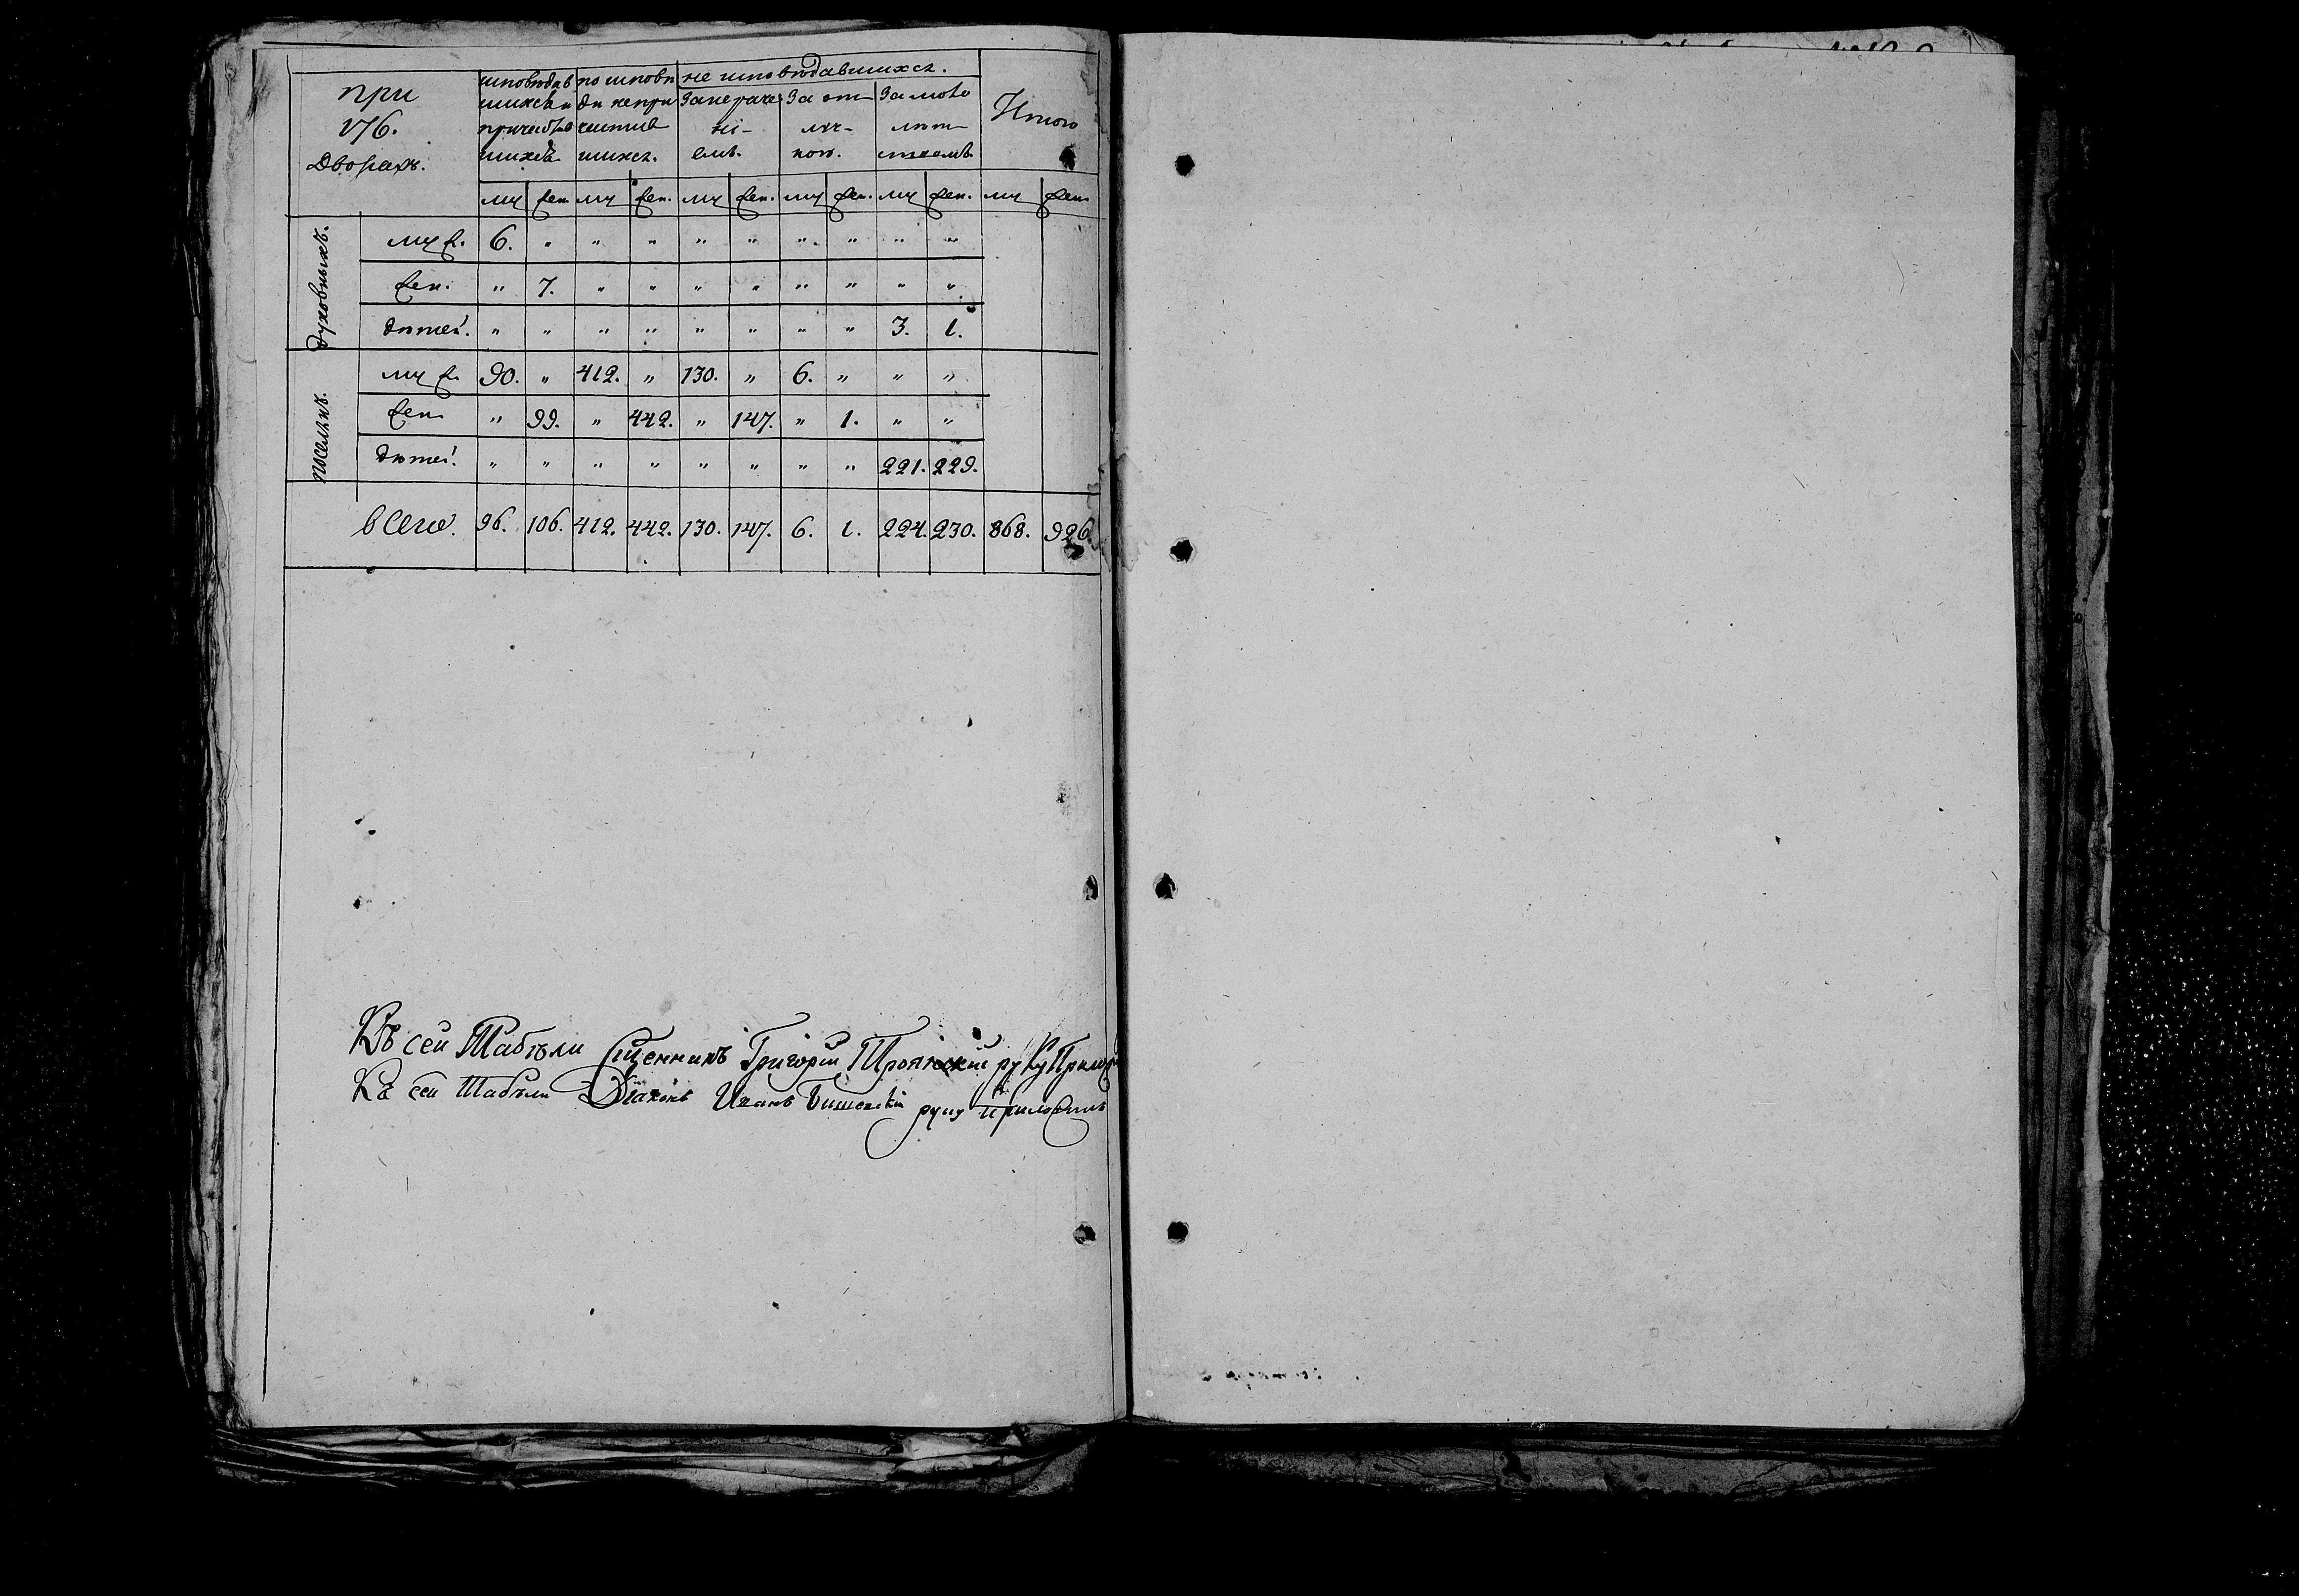 при 176. Дворахъ.
исповѣдавшихся и причастившихся
по исповѣди непричастившихся
не исповѣдавшихся.
Занераченіемъ.
За отлучкою.
За малолѣтствомъ
Итого
му жен му жен. му жен. му жен. му жен. му жен
духовныхъ.
му ж. 6. " " " " " " " " "
жен. " 7. " " " " " " " "
дѣтей. " " " " " " " " 3. 1.
поселянъ.
му ж. 90. " 412. " 130. " 6. " " "
жен " 99. " 442. " 147. " 1. " "
дѣтей. " " " " " " " " 221. 229.
всего. 96. 106. 412. 442. 130. 147. 6. 1. 224. 230. 868. 926.
Къ сей Табѣли Сщенникъ Григорій руку Прилож
Къ сей Табѣли Діаконъ Иванъ руку приложилъ